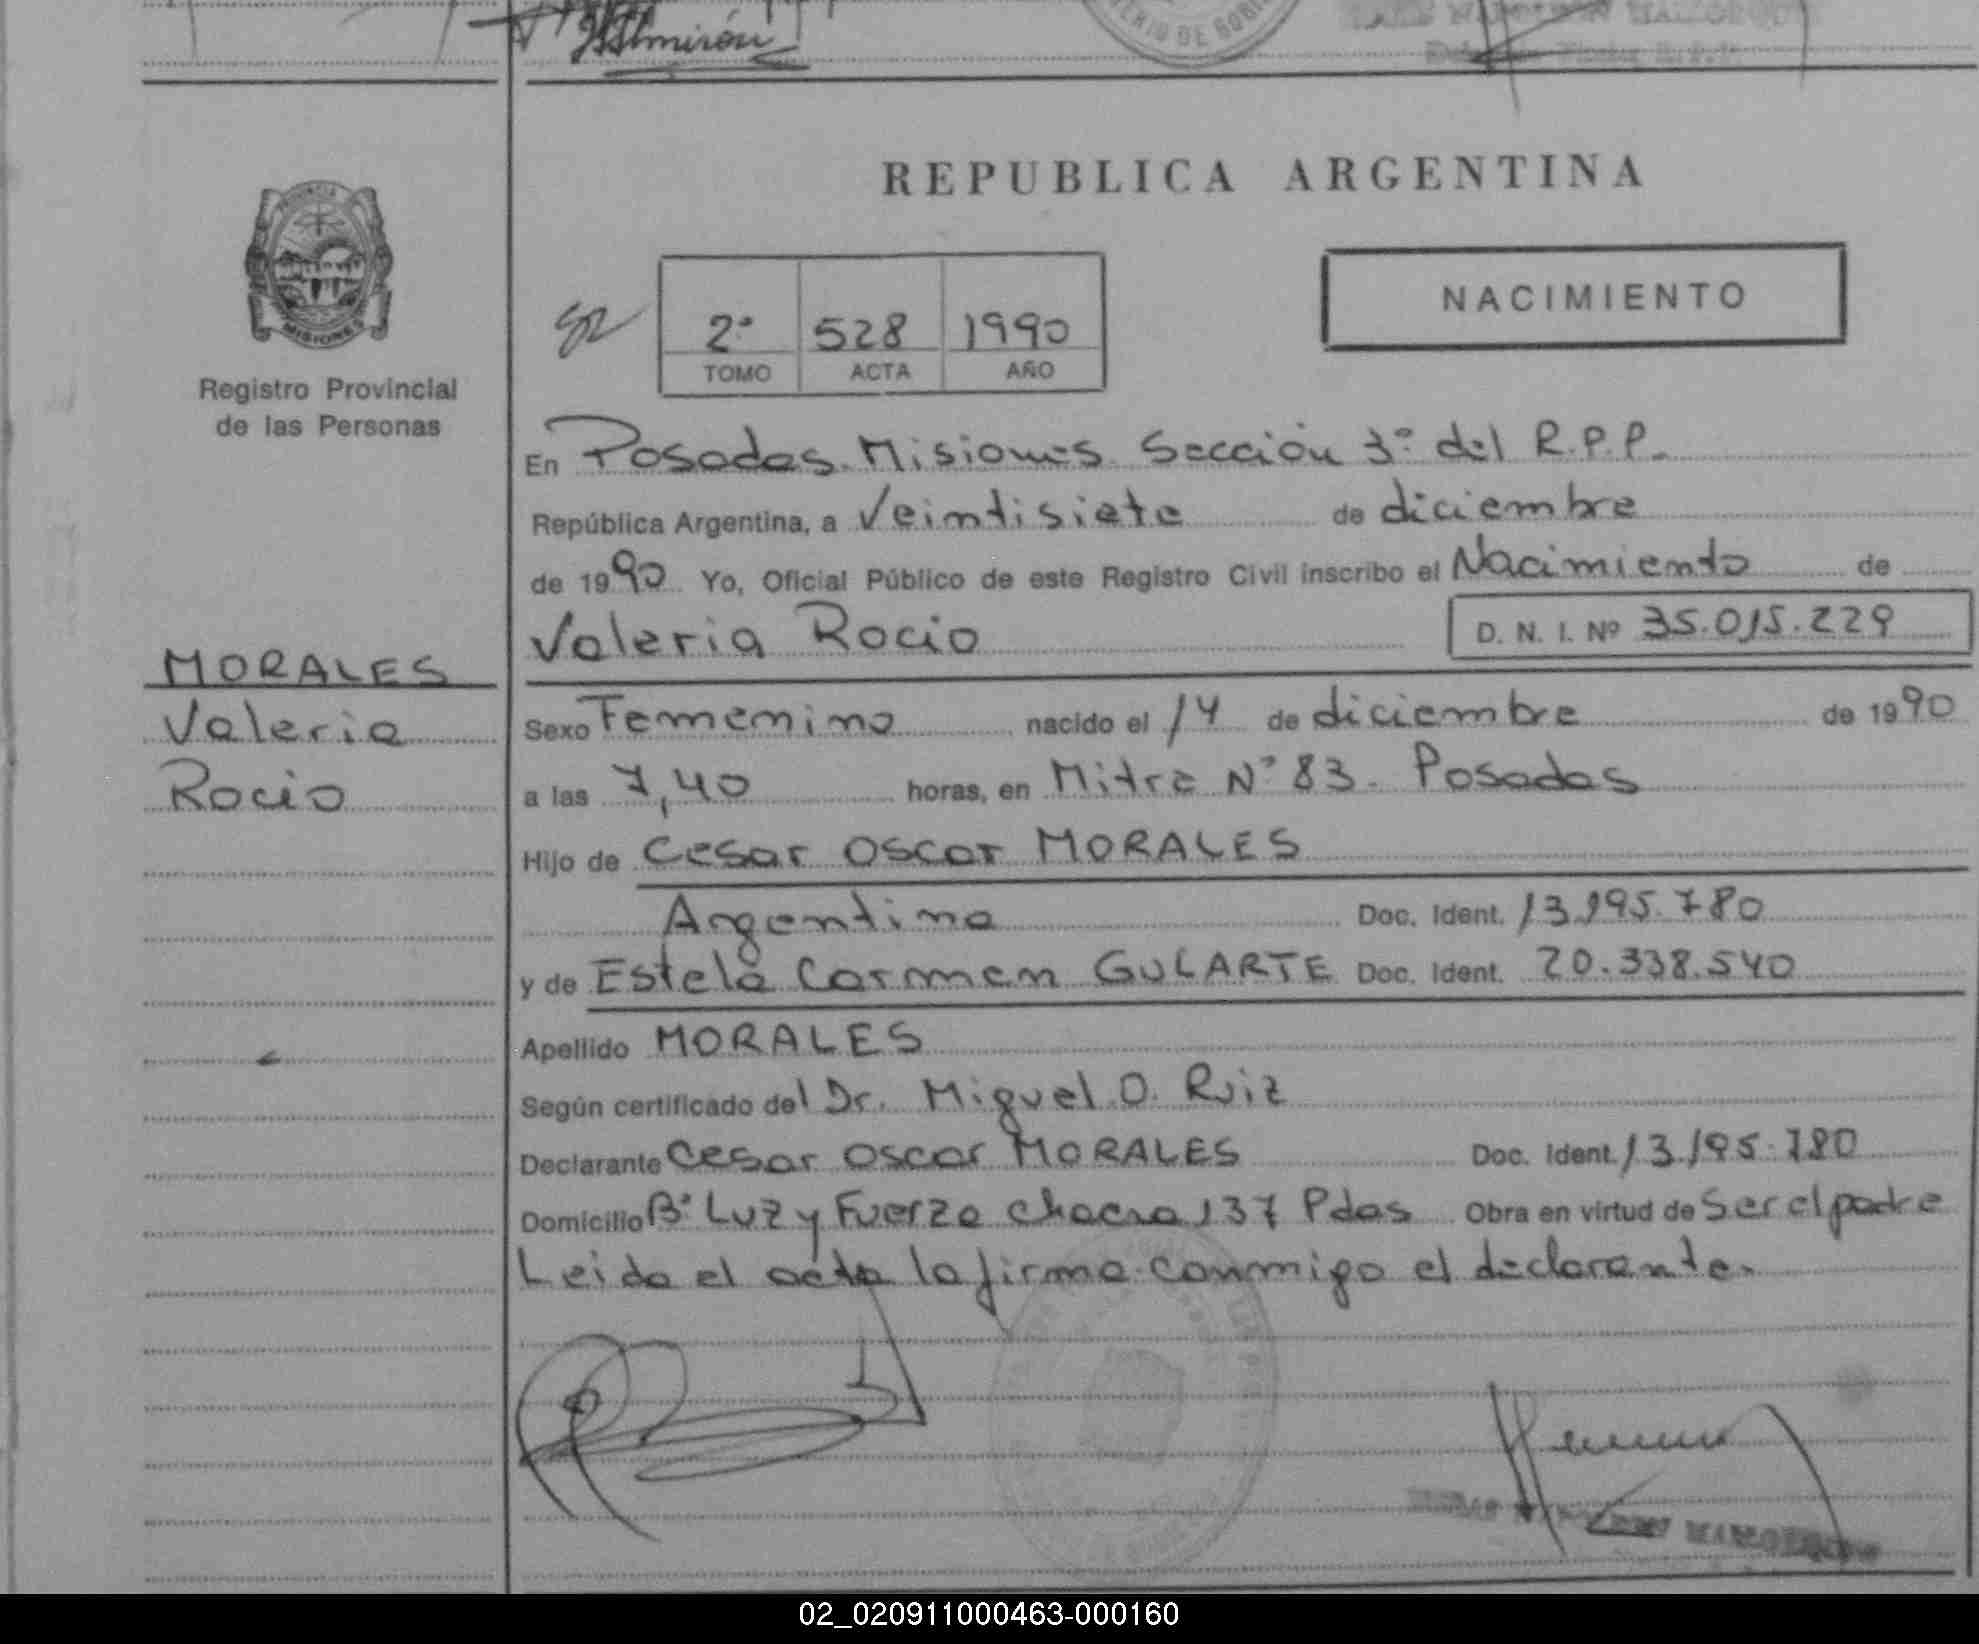 Almirón
REPUBLICA ARGENTINA
NACIMIENTO
2º 528 1990
TOMO ACTA AÑO
MISIONES
Registro Provincial
de las Personas
En Posadas Misiones Sección 3º del R.P.P.
República Argentina, a Veintisiete de diciembre
de 1990 Yo, Oficial Público de este Registro Civil inscribo el Nacimiento de
Valeria Rocio D. N. I. Nº 35.015.229
MORALES
Valeria
Rocio
Sexo Femenino nacido el 14 de diciembre de 1990
a las 7,40 horas, en Mitre Nº 83. Posadas
Hijo de Cesar Oscar MORALES
Argentino Doc. Ident. 13.195.780
y de Estela Carmen GULARTE Doc. Ident. 20.338.540
Apellido MORALES
Según certificado del Dr. Miguel O. Ruiz
Declarante Cesar Oscar MORALES Doc. Ident. 13.195.780
Domicilio Bº Luz y Fuerza chacra 137 Pdas Obra en virtud de Ser el padre
Leida el acta la firma conmigo el declarante.
02_020911000463-000160